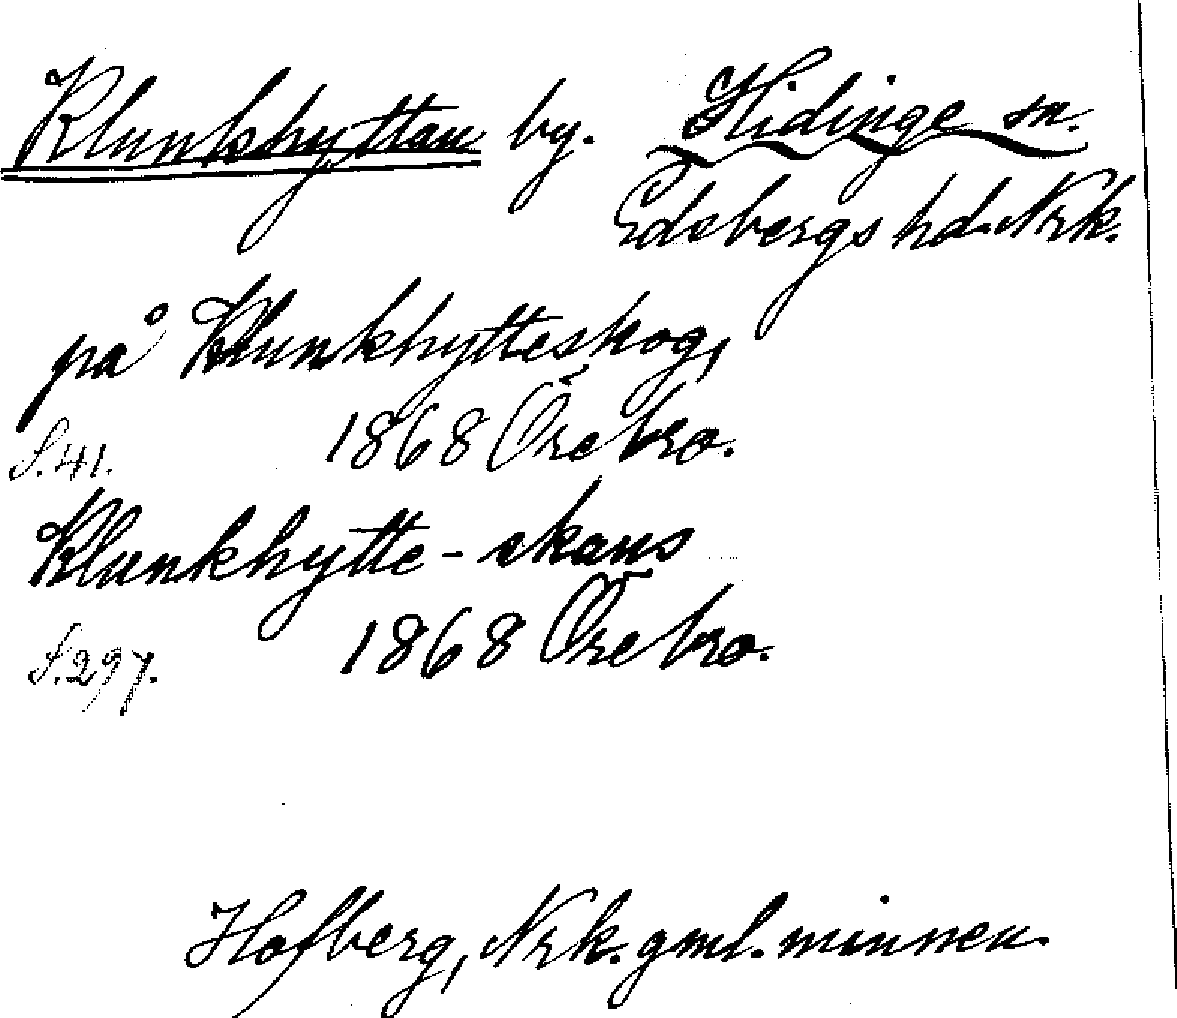 Klunkhyttan by. Hidinge sn.
Edsbergs hd. Nrk.
på Klunkhytteskog,
S. 41. 1868 Örebro.
Klunkhytte-skans
S. 297. 1868 Örebro.
Hofberg, Nrk. gml. minnen.